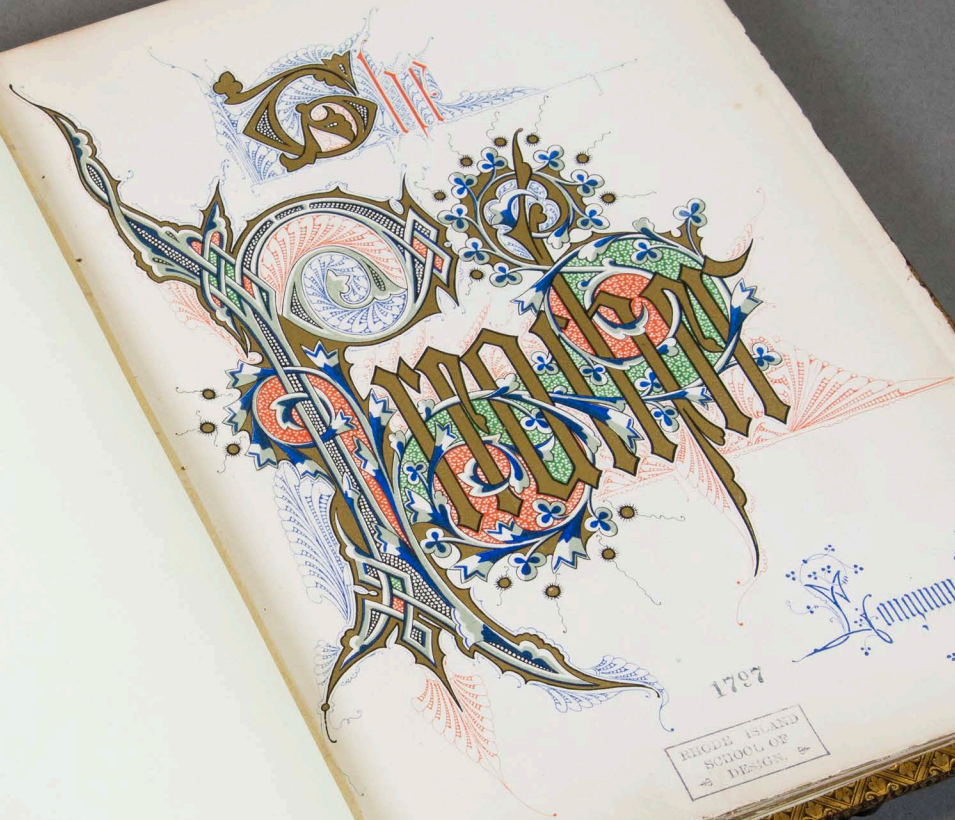 The
Longman
1797
RHODE ISLAND
SCHOOL OF
DESIGN